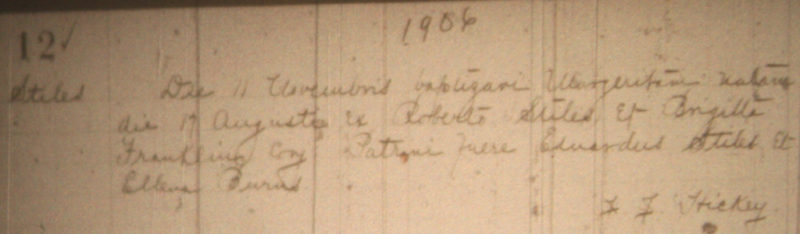 1906
12 ✓
Stiles Die 11 Novembris baptizavi Margeritam natam
die 17 Augusti ex Roberto Stiles et Brigitta
Franklin Conj Patrini fuere Eduardus Stiles et
Ellena Burns
Hickey